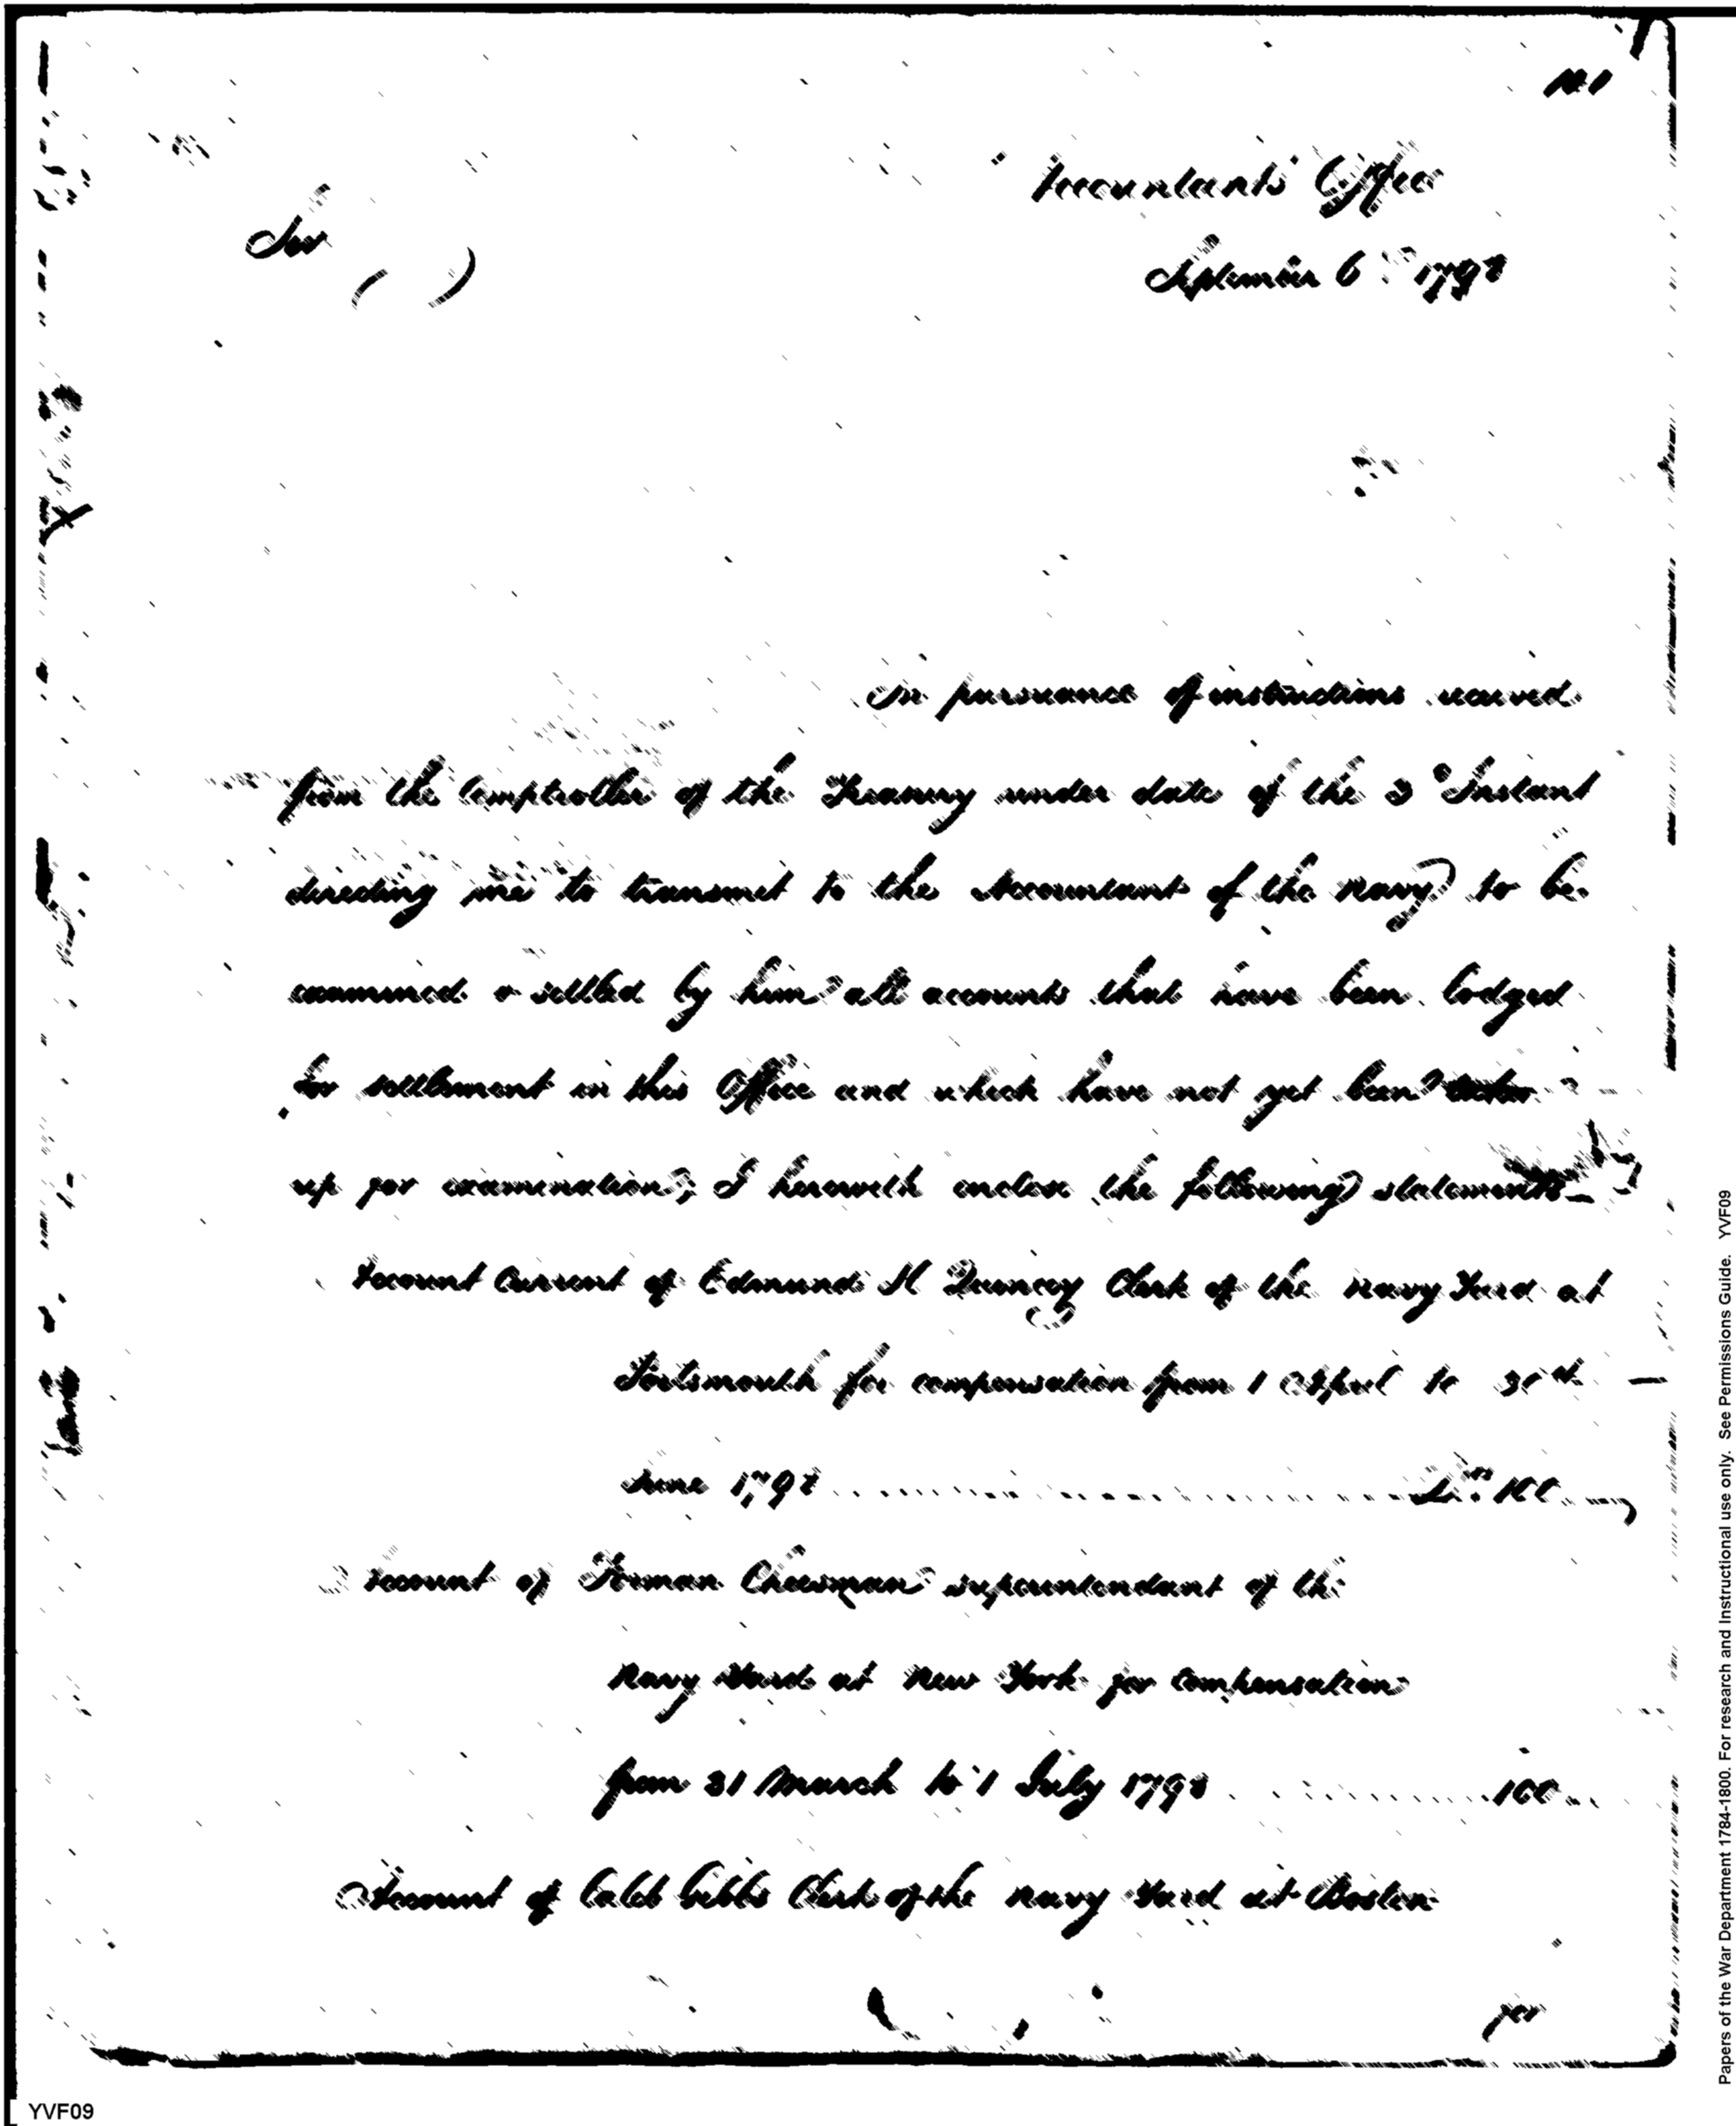 Accountants Office
Sir
September 6th 1798
In pursuance of instructions received
from the Comptroller of the Treasury under date of the 3d Instant
directing me to transmit to the Accountant of the Navy to be
examined & settled by him all accounts that have been lodged
for settlement in this Office and which have not yet been taken
up for examination, I herewith enclose the following statements
Account Current of Edmund H Quincy Clerk of the Navy Yard at
Portsmouth for compensation from 1 April to 30th
June 1798
Account of Forman Cheesman superintendant of the
Navy Yard at New York for compensation
from 31 March to 1 July 1798
Account of Caleb Gibbs Clerk of the Navy Yard at Boston
for
Papers of the War Department 1784-1800. For research and Instructional use only. See Permissions Guide. YVF09
YVF09